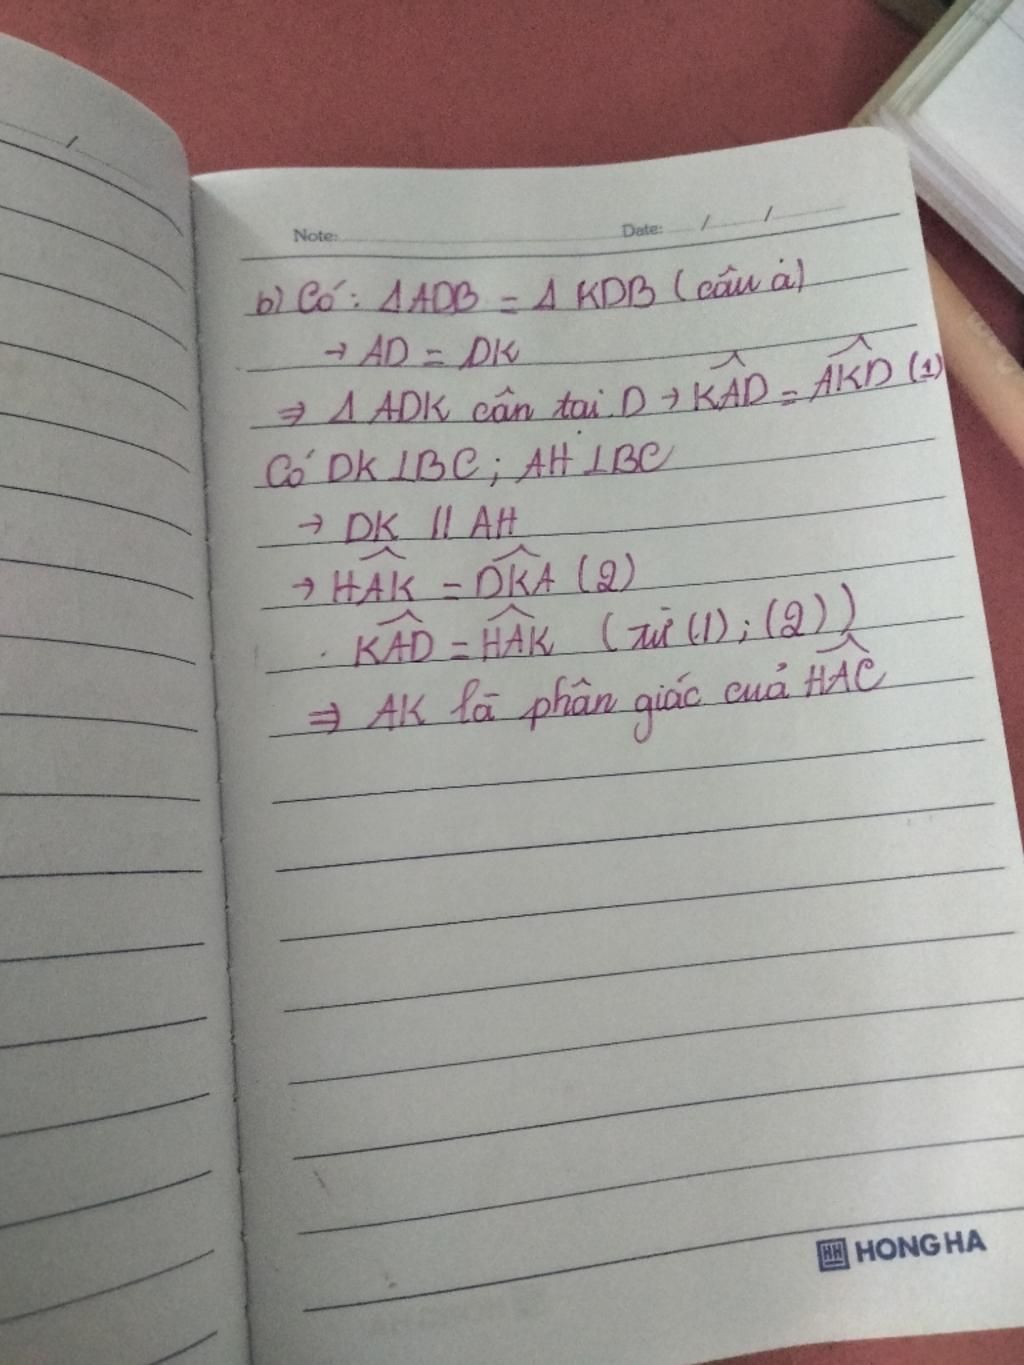 Note: Date: / /
b) Có: Δ ADB = Δ KDB (câu a)
→ AD = DK
⇒ Δ ADK cân tại D → KAD = AKD (1)
Có DK ⊥ BC; AH ⊥ BC
→ DK // AH
→ HAK = DKA (2)
KAD = HAK (từ (1); (2))
⇒ AK là phân giác của HAC
HH HONG HA